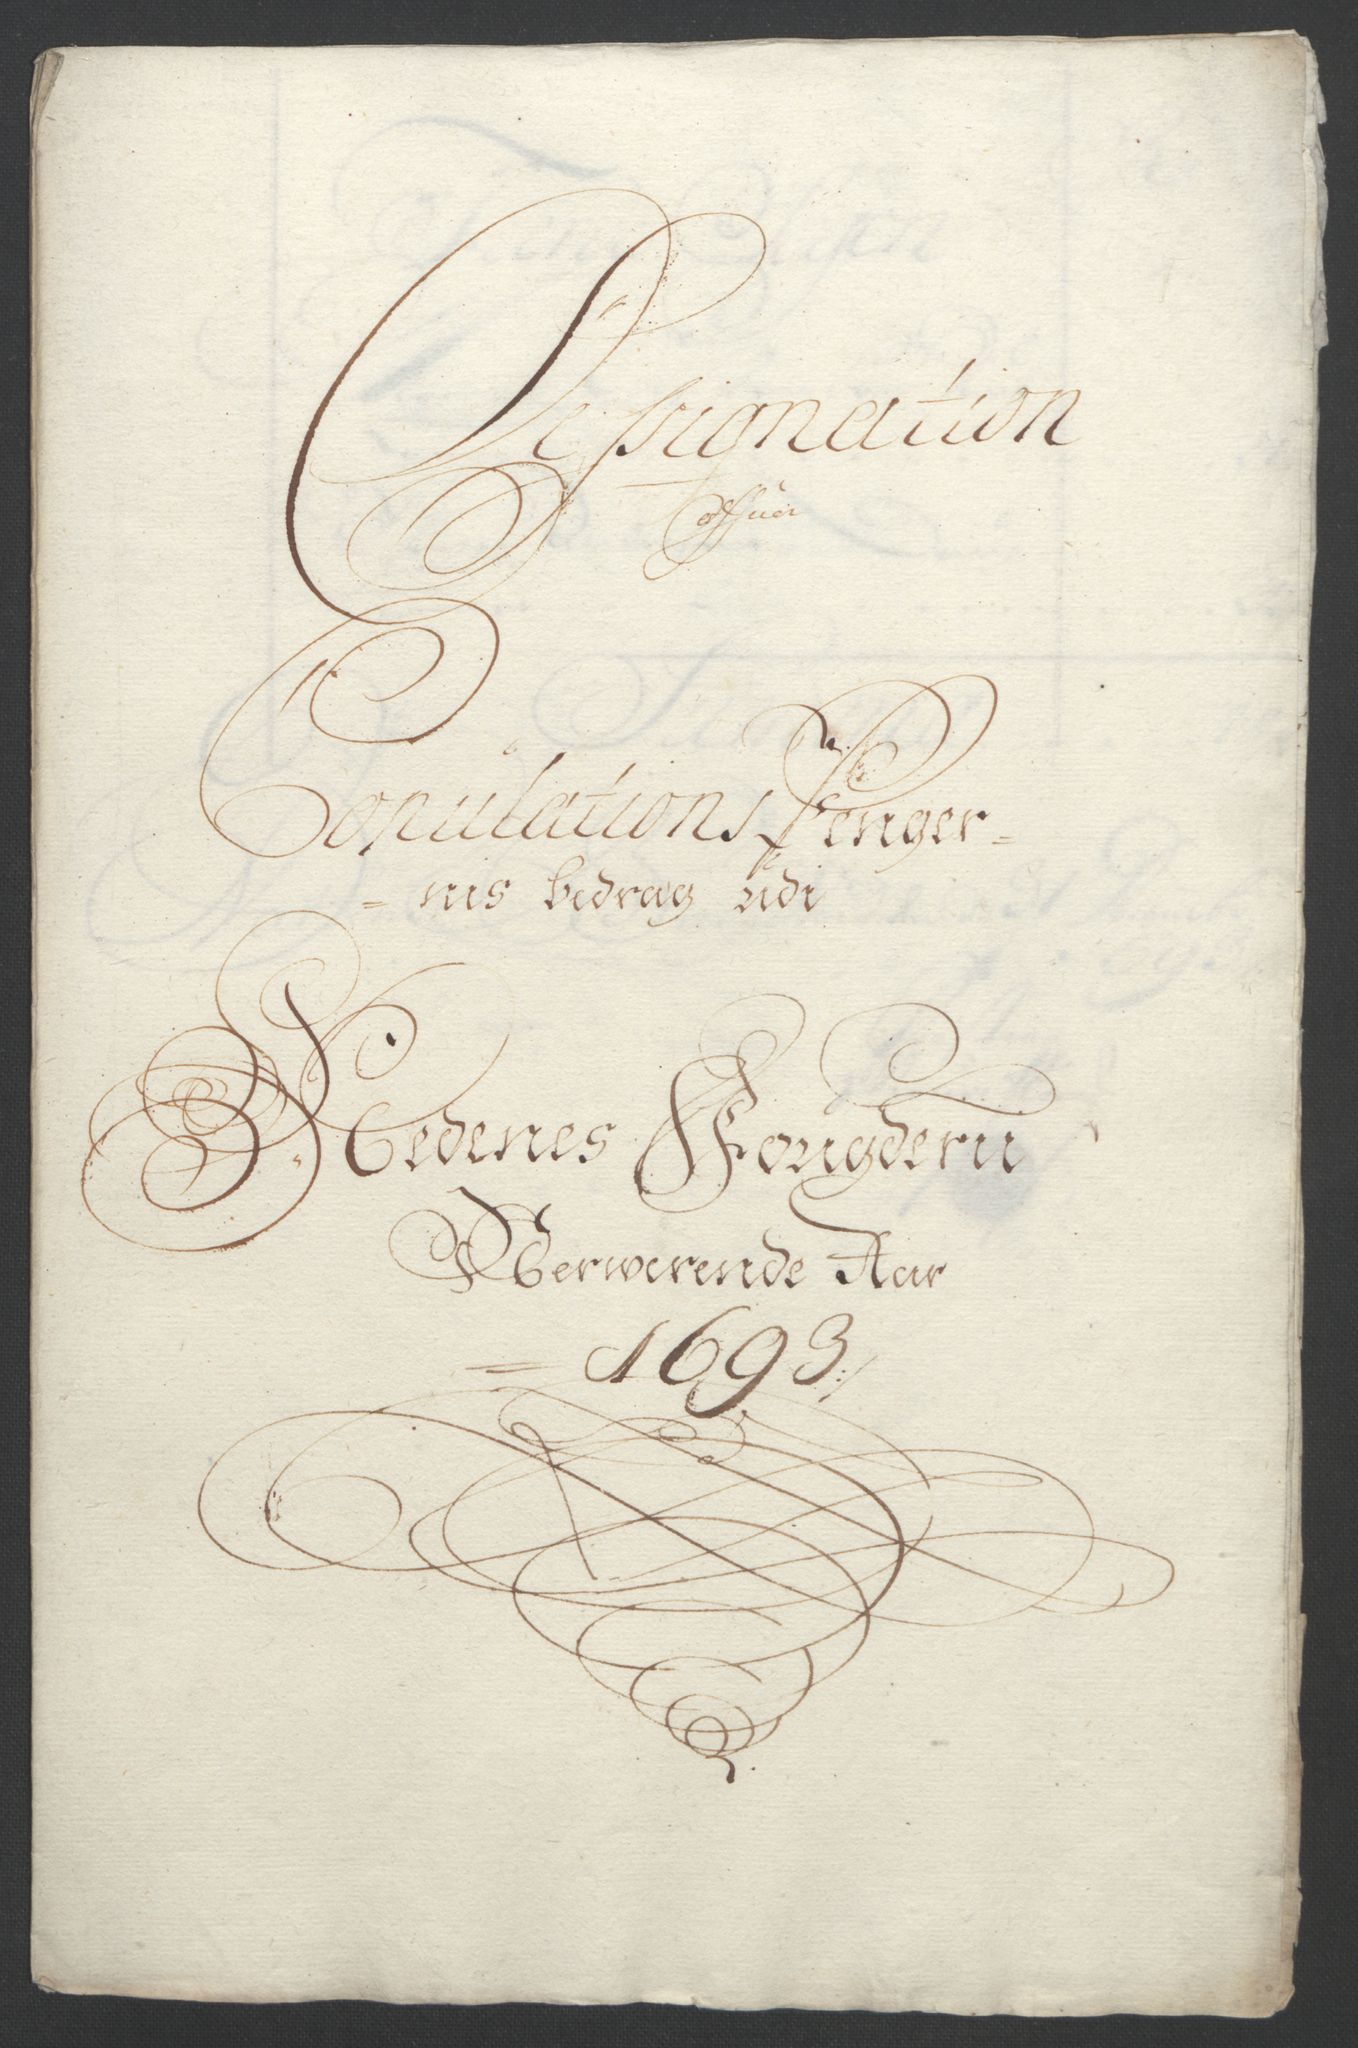 Designation
offuer
Copulations Penger=
=nis bedrag udi
Nedenes Fougderii
Nerwerende Aar
= 1693 :/